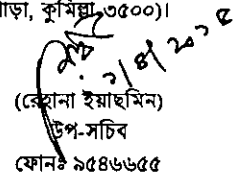 পাড়া, কুমিল্লা-৩৫০০)।
(রেহানা ইয়াছমিন)
উপ-সচিব
ফোনঃ ৯৫৪৬৬৫৫